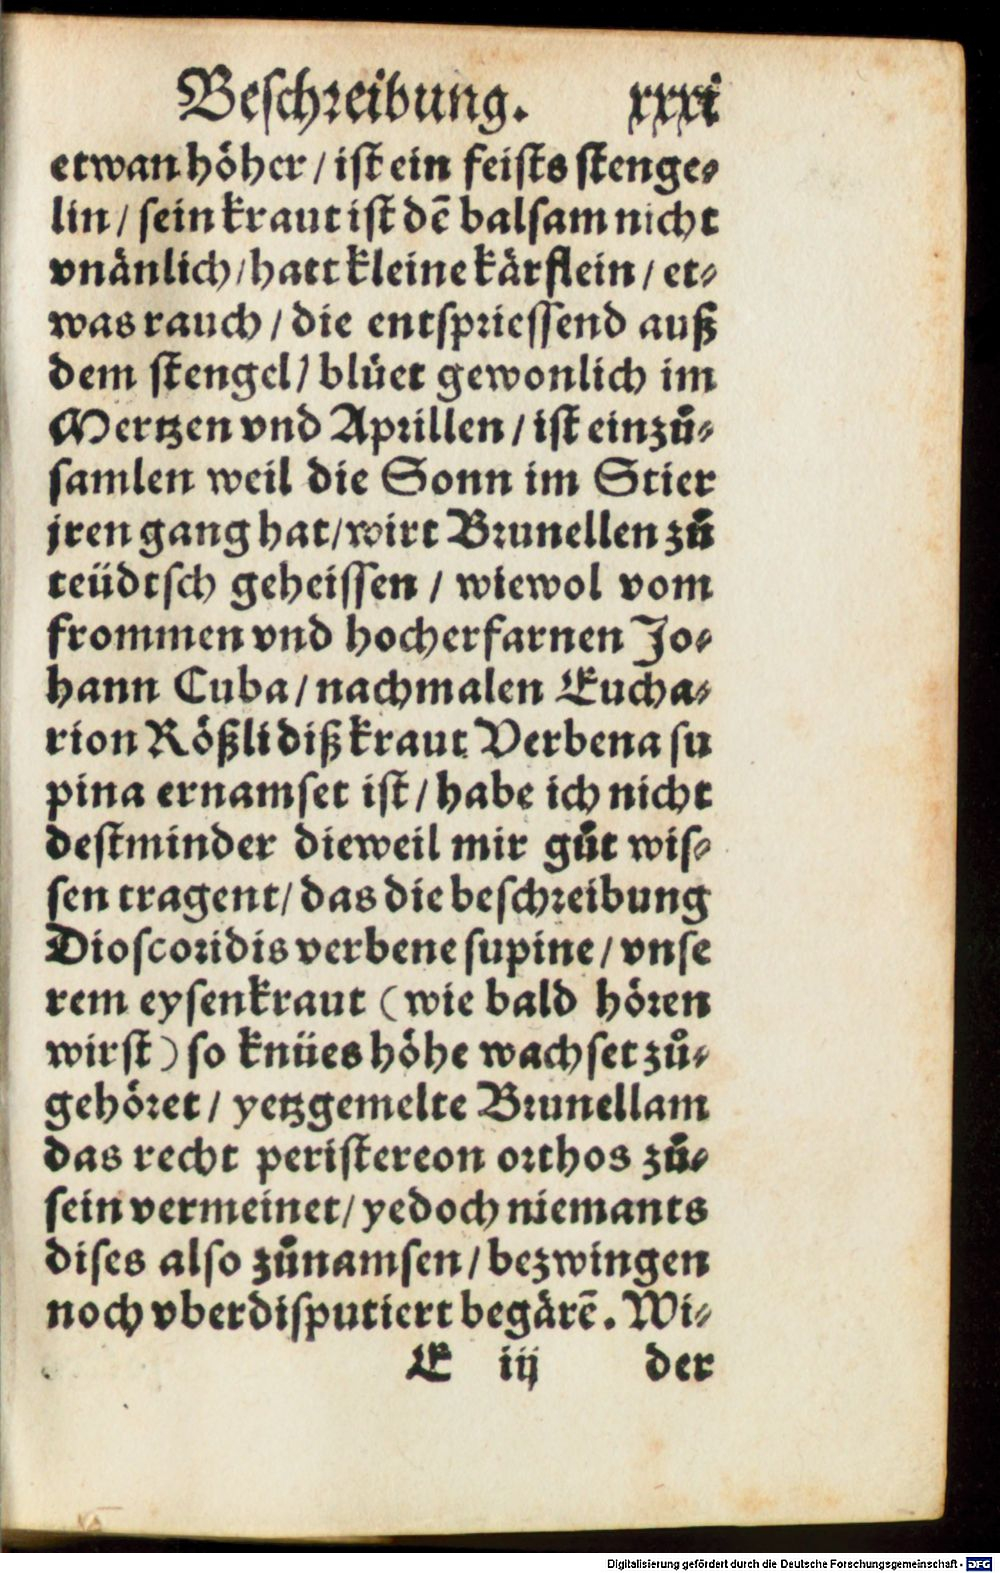 Beschreibung. xxxi
etwan höher / ist ein feists stenge⸗
lin / sein kraut ist dē balsam nicht
vnänlich / hatt kleine kärflein / et⸗
was rauch / die entspriessend auß
dem stengel / blüet gewonlich im
Mertzen vnd Aprillen / ist einzů⸗
samlen weil die Sonn im Stier
jren gang hat / wirt Brunellen zů
teüdtsch geheissen / wiewol vom
frommen vnd hocherfarnen Jo⸗
hann Cuba / nachmalen Eucha⸗
rion Rößli diß kraut Verbena su
pina ernamset ist / habe ich nicht
destminder dieweil mir gůt wis⸗
sen tragent / das die beschreibung
Dioscoridis verbene supine / vnse
rem eysenkraut (wie bald hören
wirst) so knües höhe wachset zů⸗
gehöret / yetzgemelte Brunellam
das recht peristereon orthos zů⸗
sein vermeinet / yedoch niemants
dises also zůnamsen / bezwingen
noch vberdisputiert begärē. Wi⸗
E iij der
Digitalisierung gefördert durch die Deutsche Forschungsgemeinschaft - DFG